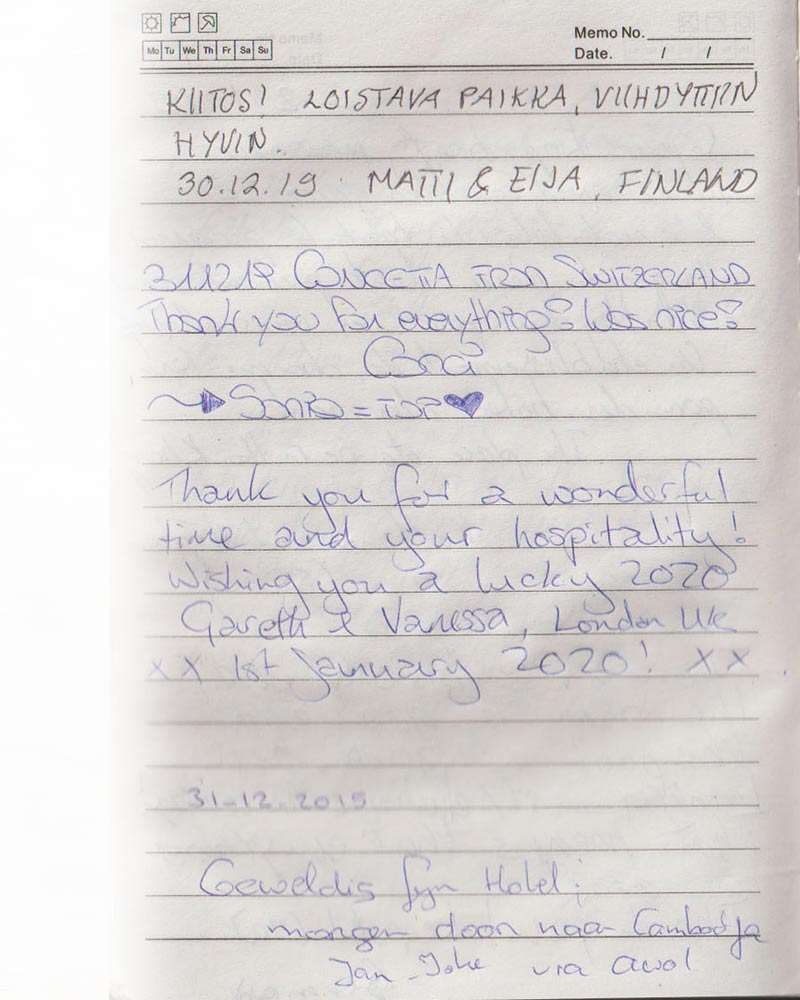 Mo Tu We Th Fr Sa Su
Memo No.
Date. / /
KIITOS! LOISTAVA PAIKKA, VIIHDYTTIIN
HYVIN.
30.12.19 MATTI & EIJA, FINLAND
311219 CONCETTA FROM SWITZERLAND
Thank you for everything! Was nice!
→ = TOP ♥
Thank you for a wonderful
time and your hospitality!
Wishing you a lucky 2020
Gareth & Vanessa, London UK
xx 1st January 2020! xx
31-12-2019
Geweldig fijn Hotel;
morgen door naar Cambodja
Jan - Joke via